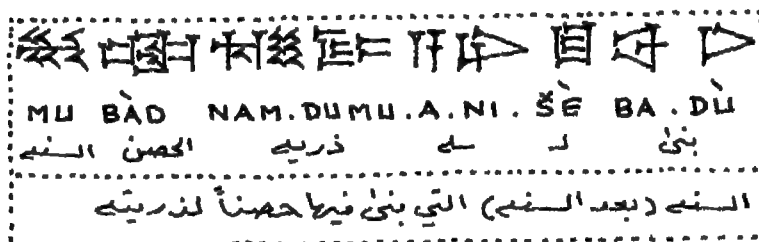 MU BÀD NAM.DUMU.A.NI.ŠÈ BA.DÙ
بنىٰ لـ ـه ذريه الحصن السنه
السنه (بعد السنه) التي بنىٰ فيها حصناً لذريته